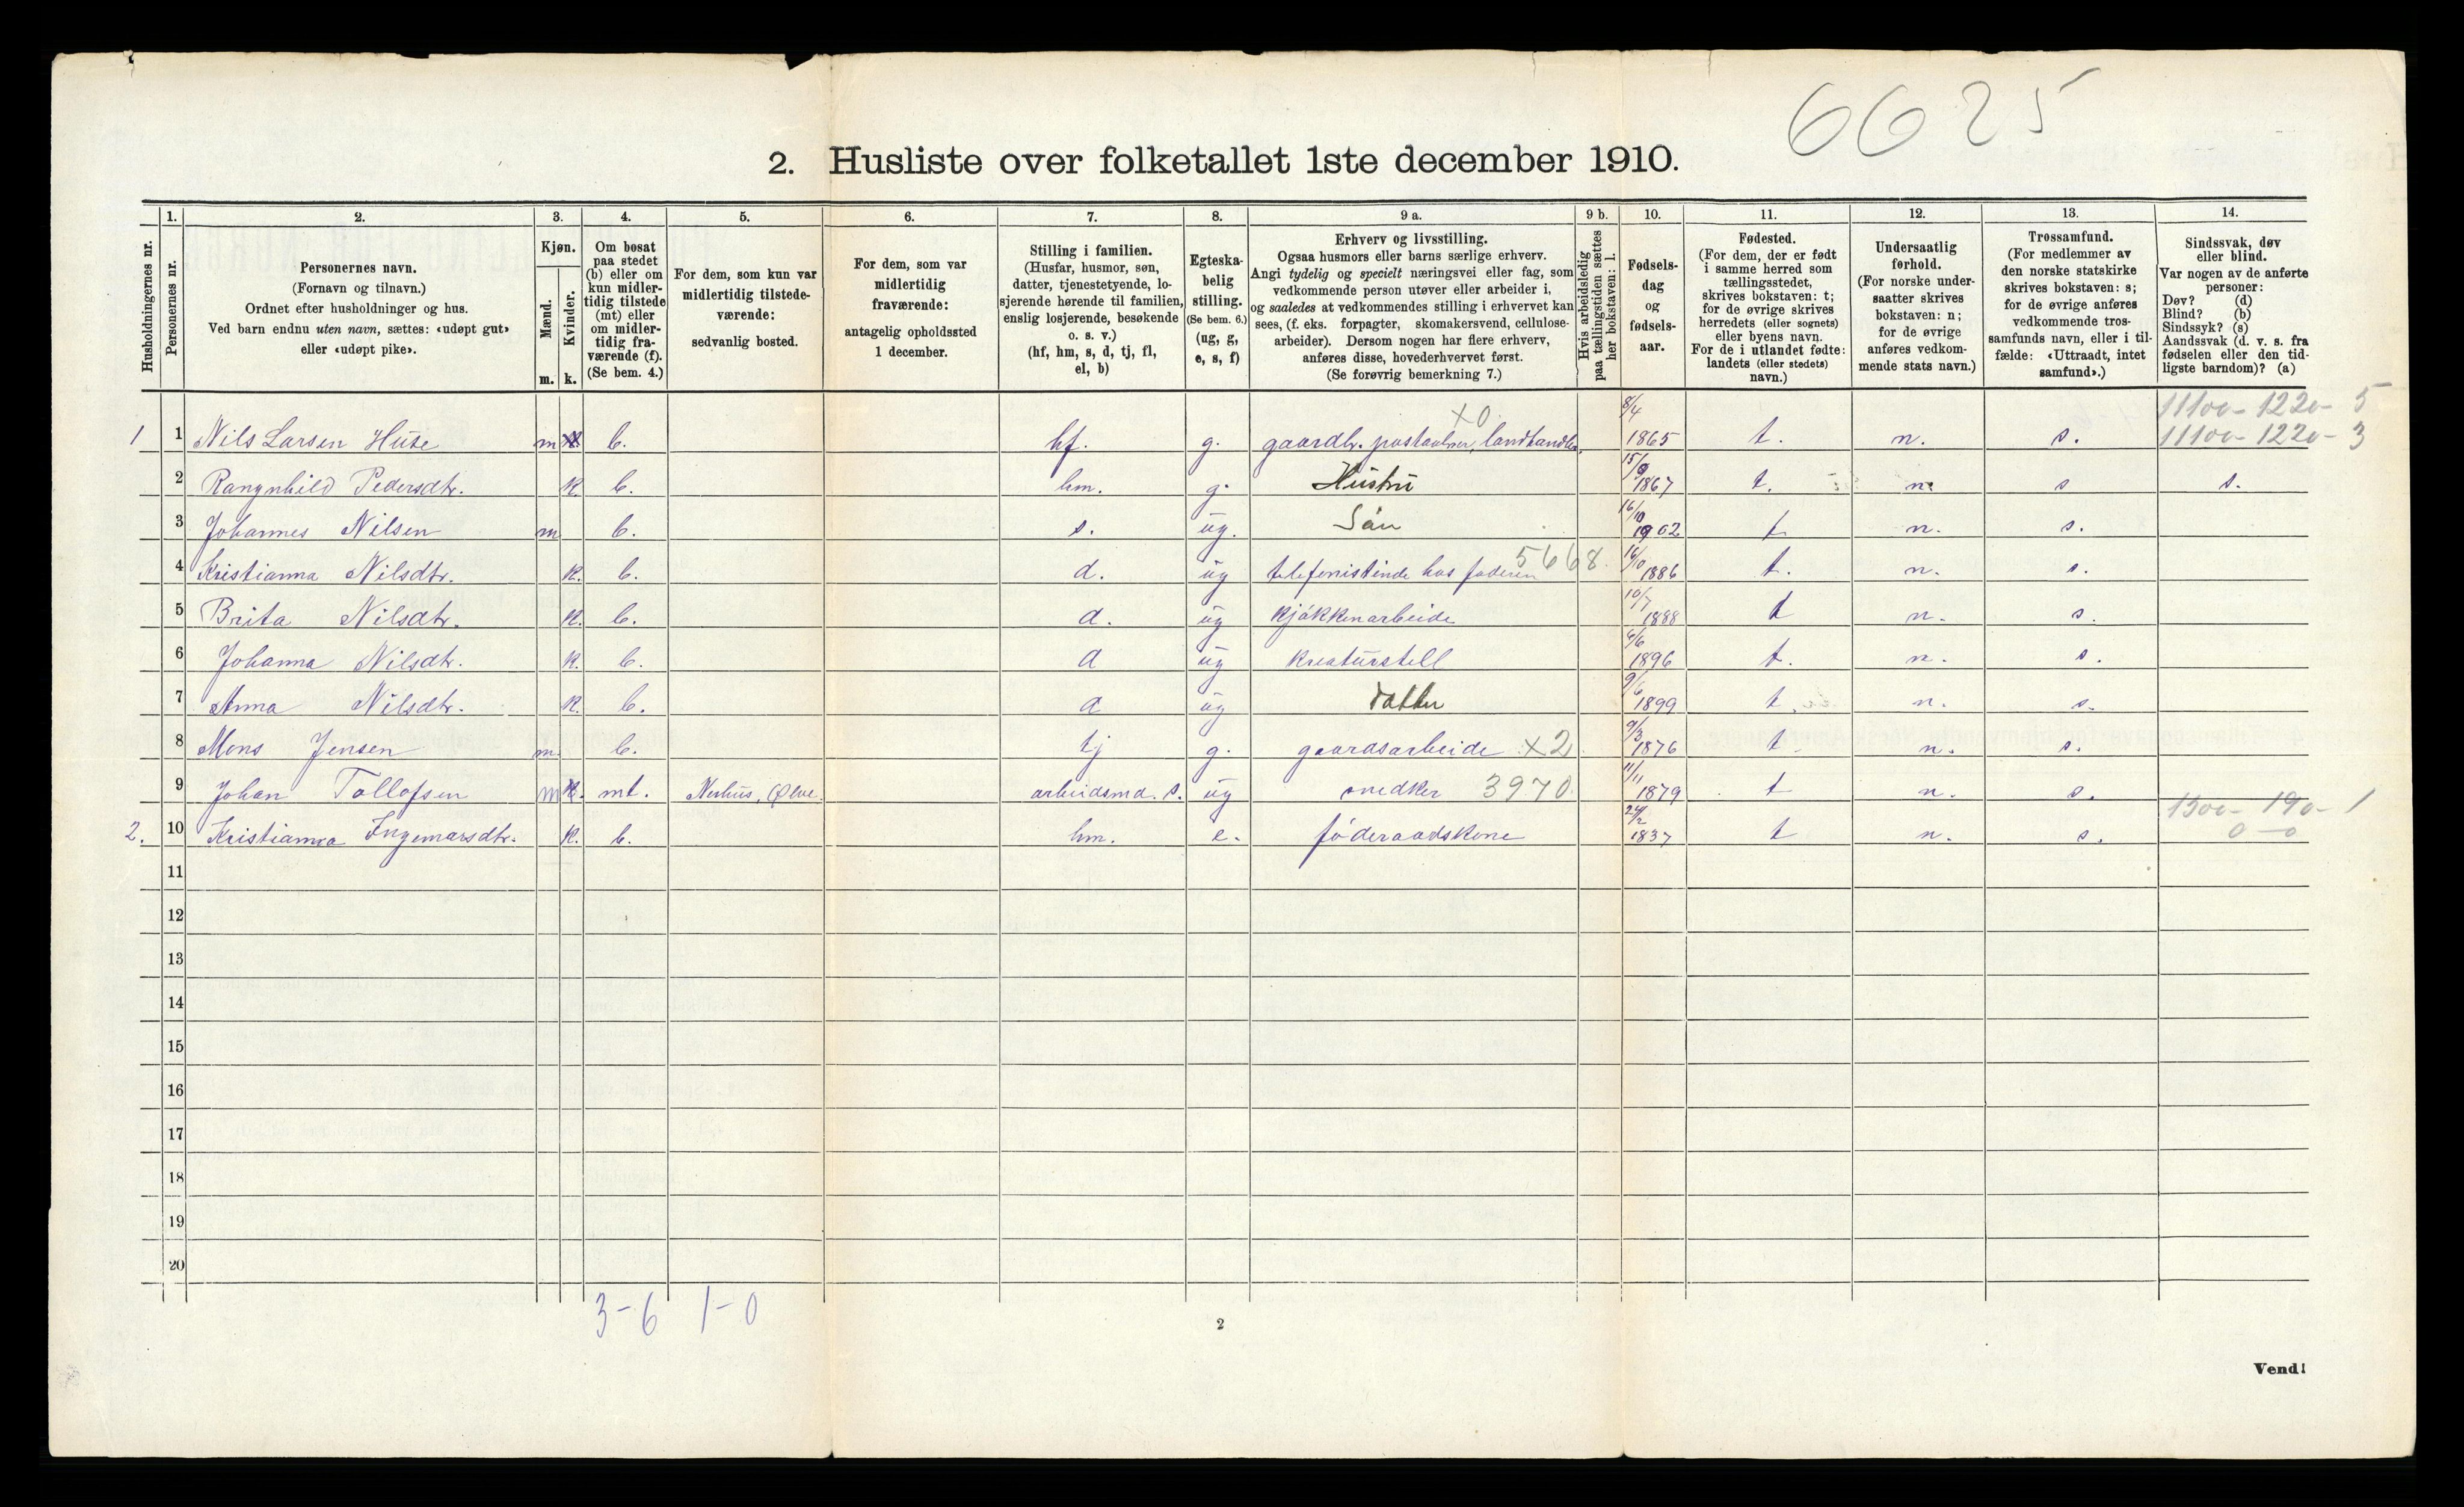 6625
2. Husliste over folketallet 1ste december 1910.
Husholdningernes nr.
1.
Personernes nr.
2.
Personernes navn.
(Fornavn og tilnavn.)
Ordnet efter husholdninger og hus.
Ved barn endnu uten navn, sættes: «udøpt gut»
eller «udøpt pike».
3.
Kjøn.
Mænd.
Kvinder.
m. k.
4.
Om bosat
paa stedet
(b) eller om
kun midler-
tidig tilstede
(mt) eller
om midler-
tidig fra-
værende (f).
(Se bem. 4.)
5.
For dem, som kun var
midlertidig tilstede-
værende:
sedvanlig bosted.
6.
For dem, som var
midlertidig
fraværende:
antagelig opholdssted
1 december.
7.
Stilling i familien.
(Husfar, husmor, søn,
datter, tjenestetyende, lo-
sjerende hørende til familien,
enslig losjerende, besøkende
o. s. v.)
(hf, hm, s, d, tj, fl,
el, b)
8.
Egteska-
belig
stilling.
(Se bem. 6.)
(ug, g,
e, s, f)
9 a.
Erhverv og livsstilling.
Ogsaa husmors eller barns særlige erhverv.
Angi tydelig og specielt næringsvei eller fag, som
vedkommende person utøver eller arbeider i,
og saaledes at vedkommendes stilling i erhvervet kan
sees, (f. eks. forpagter, skomakersvend, cellulose-
arbeider). Dersom nogen har flere erhverv,
anføres disse, hovederhvervet først.
(Se forøvrig bemerkning 7.)
9 b.
Hvis arbeidsledig
paa tællingstiden sættes
her bokstaven: l.
10.
Fødsels-
dag
og
fødsels-
aar.
11.
Fødested.
(For dem, der er født
i samme herred som
tællingsstedet,
skrives bokstaven: t;
for de øvrige skrives
herredets (eller sognets)
eller byens navn.
For de i utlandet fødte:
landets (eller stedets)
navn.)
12.
Undersaatlig
forhold.
(For norske under-
saatter skrives
bokstaven: n;
for de øvrige
anføres vedkom-
mende stats navn.)
13.
Trossamfund.
(For medlemmer av
den norske statskirke
skrives bokstaven: s;
for de øvrige anføres
vedkommende tros-
samfunds navn, eller i til-
fælde: «Uttraadt, intet
samfund».)
14.
Sindssvak, døv
eller blind.
Var nogen av de anførte
personer:
Døv? (d)
Blind? (b)
Sindssyk? (s)
Aandssvak (d. v. s. fra
fødselen eller den tid-
ligste barndom)? (a)
11100 - 1220 - 5
1 1 Nils Larsen Huse m b. hf. g. x0 gaardbr. postaabner, landhandler, 8/4 1865 t. n. s. 11100 - 1220 - 3
2 Rangnhild Pedersdtr. k. b. hm. g. Hustru 15/9 1867 t. n. s s.
3 Johannes Nilsen m b. s. ug. Sön 16/10 1902 t n. s.
4 Kristianna Nilsdtr. k. b. d. ug telefonistinde hos faderen 5668. 16/10 1886 t. n. s.
5 Brita Nilsdtr. k. b. d. ug kjökkenarbeide 10/7 1888 t n. s.
6 Johanna Nilsdtr. k. b. d ug kreaturstell 4/6 1896 t. n. s.
7 Anna Nilsdtr. k. b. d ug datter 9/6 1899 t. n. s.
8 Mons Jensen m. b. tj g. gaardsarbeide x2 9/3 1876 t n. s.
9 Johan Tollofsen m mt. Nerhus, Ølve. arbeidsmd. s. ug snedker 3970. 11/11 1879 t n. s.
1300 - 190 - 1
2. 10 Kristianna Ingemarsdtr. k. b. hm. e. föderaadskone 24/2 1837 t n. s. 0 - 0
11
12
13
14
15
16
17
18
19
20
3-6 1-0
2
Vend!